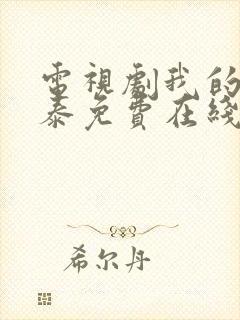 電視劇我的
泰免費在綫
希尔丹